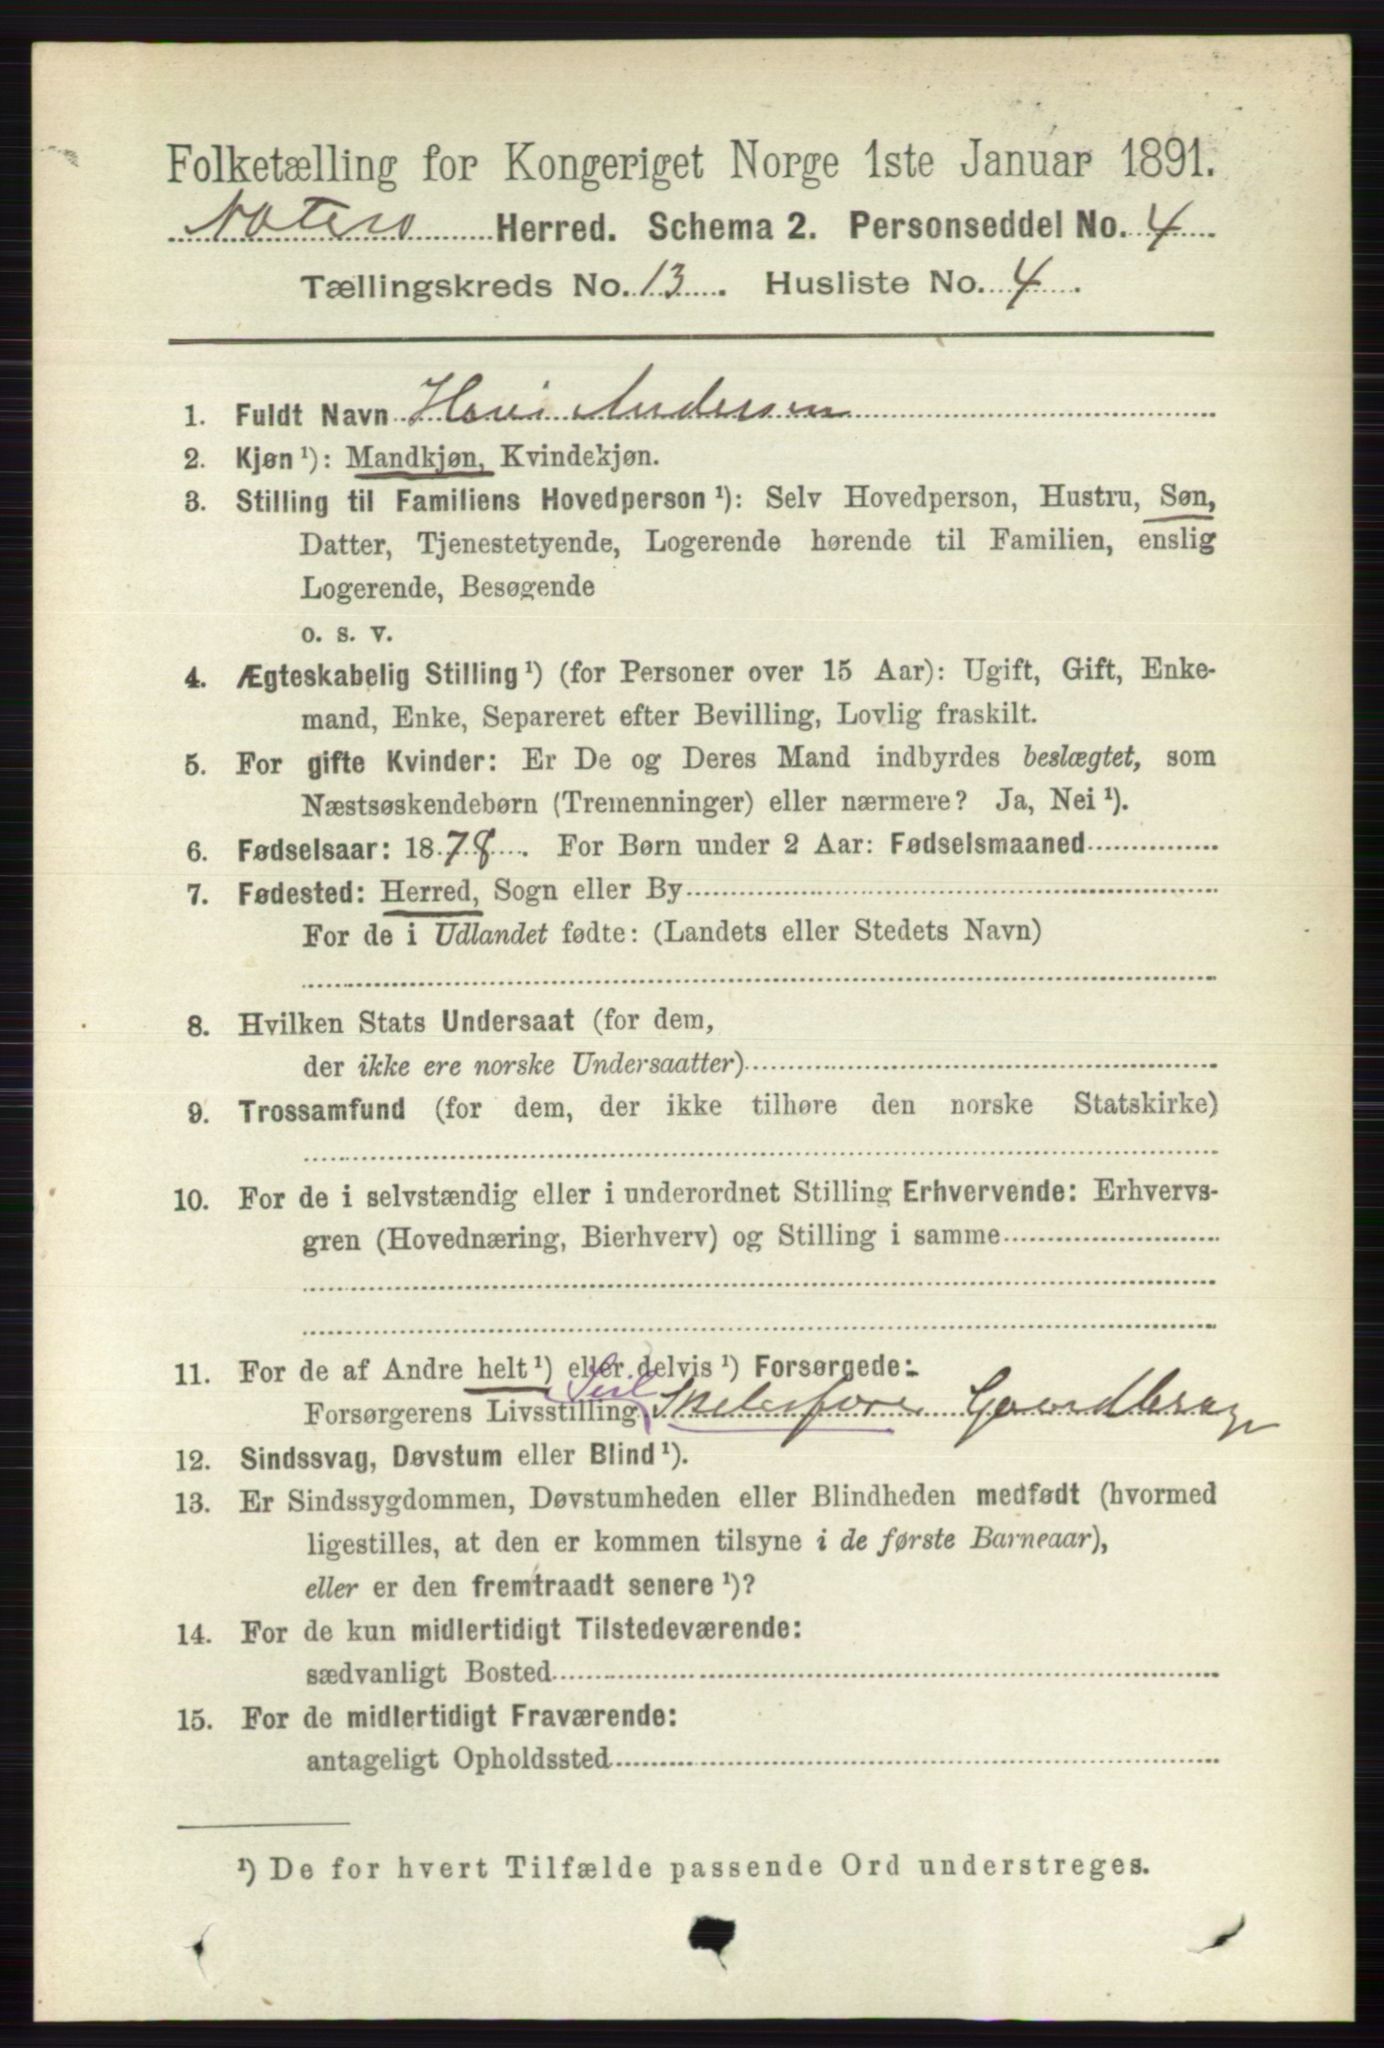 Folketælling for Kongeriget Norge 1ste Januar 1891.
Nøterø Herred. Schema 2. Personseddel No. 4
Tællingskreds No. 13. Husliste No. 4.
1. Fuldt Navn Andersen
2. Kjøn ¹): Mandkjøn, Kvindekjøn.
3. Stilling til Familiens Hovedperson ¹): Selv Hovedperson, Hustru, Søn,
Datter, Tjenestetyende, Logerende hørende til Familien, enslig
Logerende, Besøgende
o. s. v.
4. Ægteskabelig Stilling ¹) (for Personer over 15 Aar): Ugift, Gift, Enke-
mand, Enke, Separeret efter Bevilling, Lovlig fraskilt.
5. For gifte Kvinder: Er De og Deres Mand indbyrdes beslægtet, som
Næstsøskendebørn (Tremenninger) eller nærmere? Ja, Nei ¹).
6. Fødselsaar: 1878. For Børn under 2 Aar: Fødselsmaaned
7. Fødested: Herred, Sogn eller By
For de i Udlandet fødte: (Landets eller Stedets Navn)
8. Hvilken Stats Undersaat (for dem,
der ikke ere norske Undersaatter)
9. Trossamfund (for dem, der ikke tilhøre den norske Statskirke)
10. For de i selvstændig eller i underordnet Stilling Erhvervende: Erhvervs-
gren (Hovednæring, Bierhverv) og Stilling i samme
11. For de af Andre helt ¹) eller delvis ¹) Forsørgede:
Forsørgerens Livsstilling
12. Sindssvag, Døvstum eller Blind ¹).
13. Er Sindssygdommen, Døvstumheden eller Blindheden medfødt (hvormed
ligestilles, at den er kommen tilsyne i de første Barneaar),
eller er den fremtraadt senere ¹)?
14. For de kun midlertidigt Tilstedeværende:
sædvanligt Bosted
15. For de midlertidigt Fraværende:
antageligt Opholdssted
¹) De for hvert Tilfælde passende Ord understreges.